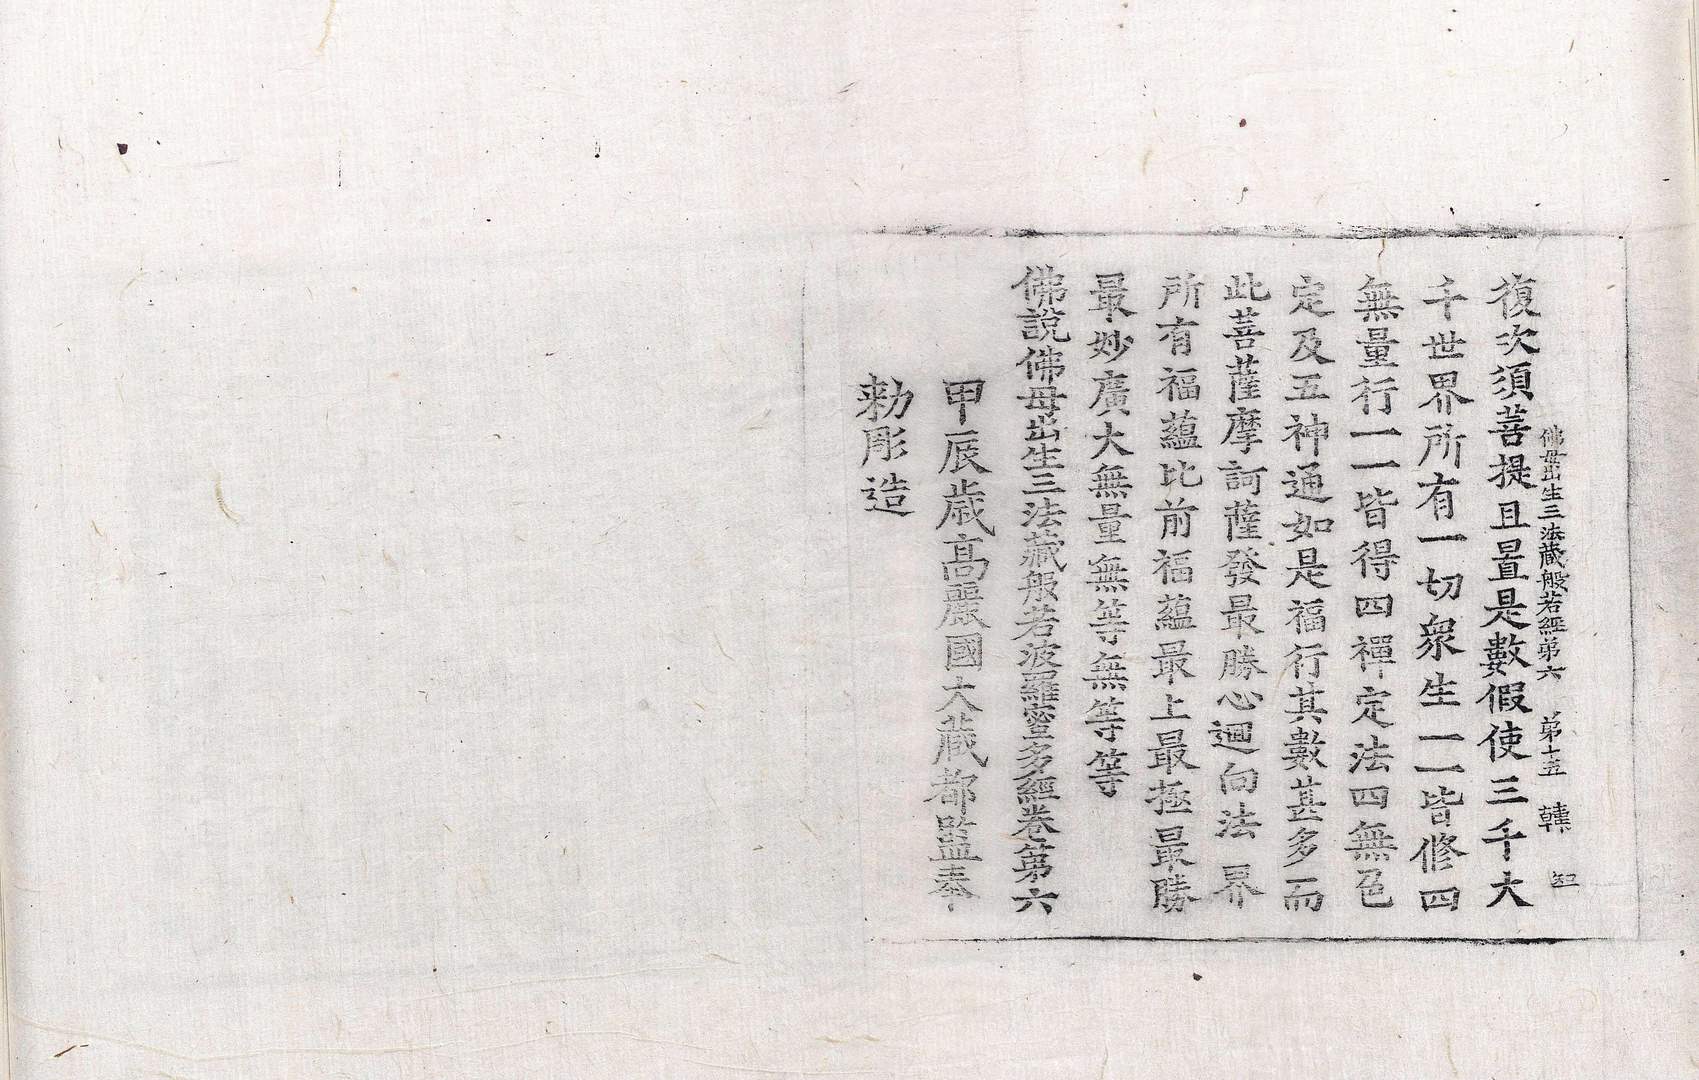 佛母出生三法藏般若經第六　第十五　韓
復次須菩提且置是數假使三千大
千世界所有一切衆生一一皆修四
無量行一一皆得四禪定法四無色
定及五神通如是福行其數甚多而
此菩薩摩訶薩發最勝心迴向法界
所有福蘊比前福蘊最上最極最勝
最妙廣大無量無等無等等
佛說佛母出生三法藏般若波羅蜜多經卷第六
甲辰歲高麗國大藏都監奉
勑彫造